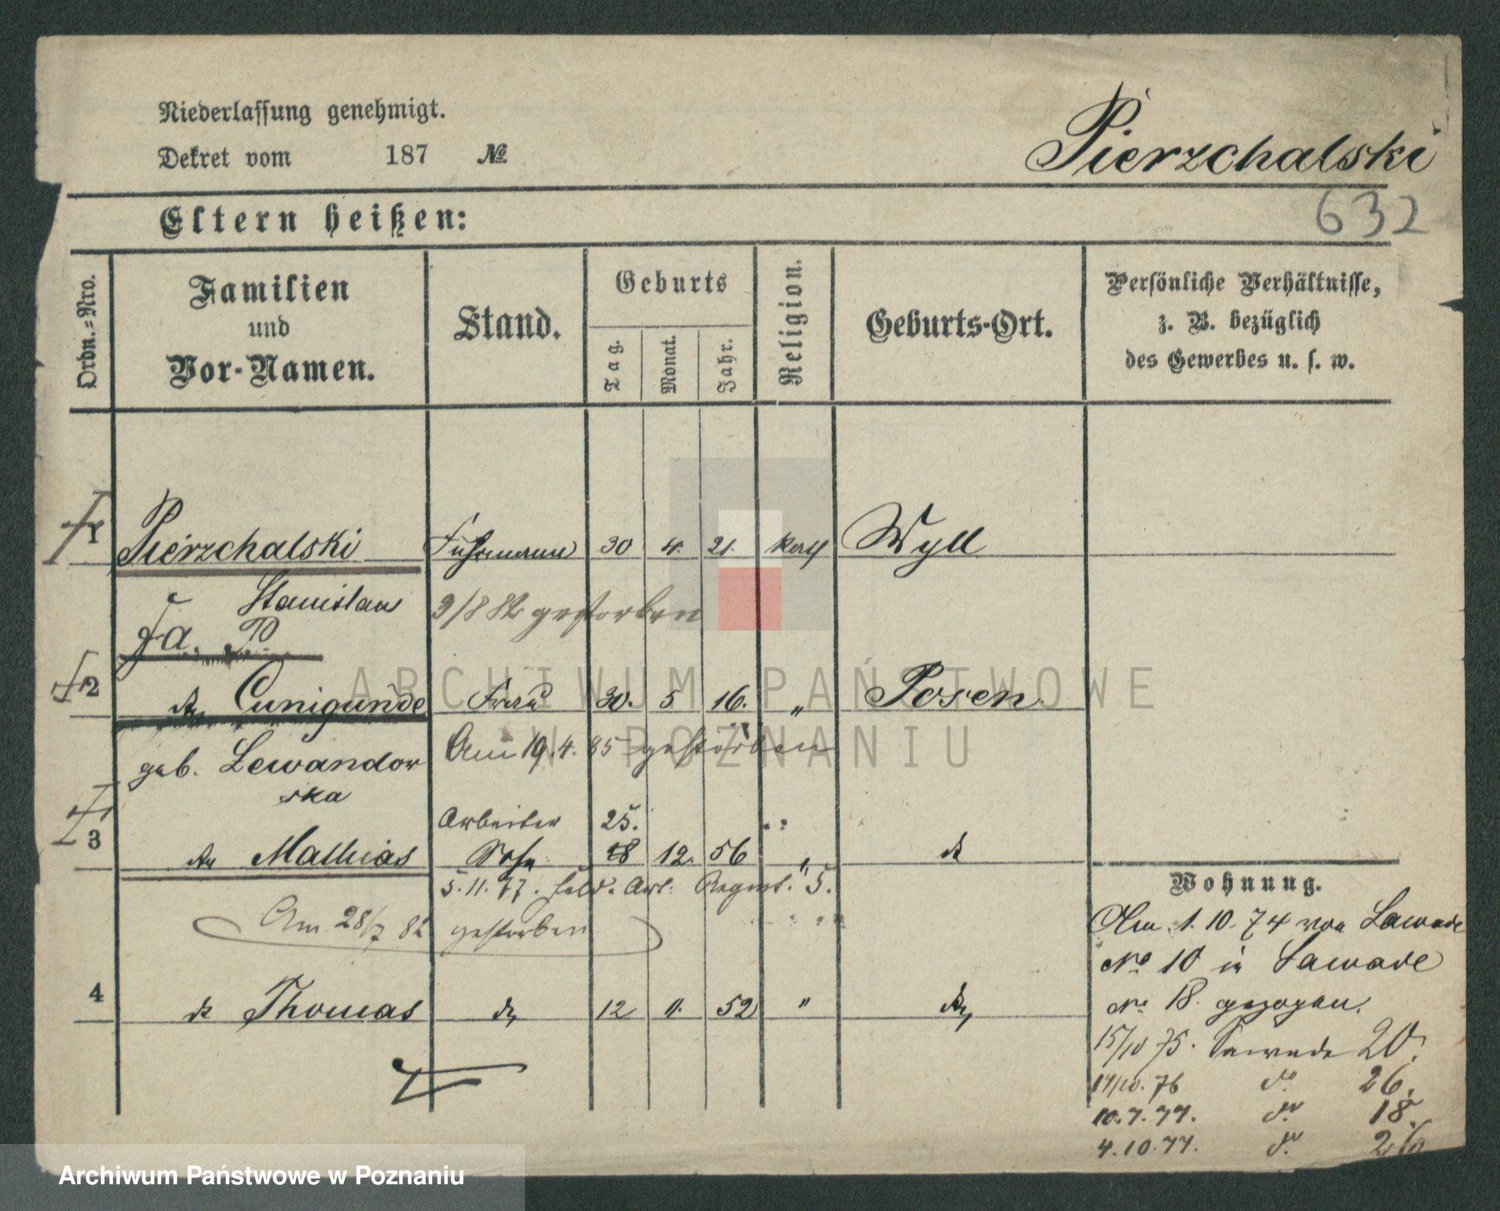 Niederlassung genehmigt.
Dekret vom 187 №
Pierzchalski
632
Eltern heißen:
Ordn.=Nro.
Familien
und
Vor-Namen.
Stand.
Geburts
Tag.
Monat.
Jahr.
Religion.
Geburts-Ort.
Persönliche Verhältnisse,
z. B. bezüglich
des Gewerbes u. s. w.
1 Pierzchalski Fuhrmann 30 4. 21. kath Wyll
Stanislaus
9/8 82 gestorben
2 Cunigunde Frau 30. 5 16. " Posen
geb. Lewandow
ska
Am 19.4. 85 gestorben
Arbeiter 25.
3 Mathias Sohn 18 12. 56 "
5.11.77. Feld. Art. Regmt. 5.
Am 28/7 82 gestorben
4 Thomas 12 11. 52 "
Wohnung.
Am 1.10.74 von Zawade
No 10 in Zawade
No 18. gezogen.
15/10 75. Zawade 20.
17/10. 76 do 26.
10.7.77. do 18.
4.10.77. do
ARCHIWUM PAŃSTWOWE
W POZNANIU
Archiwum Państwowe w Poznaniu